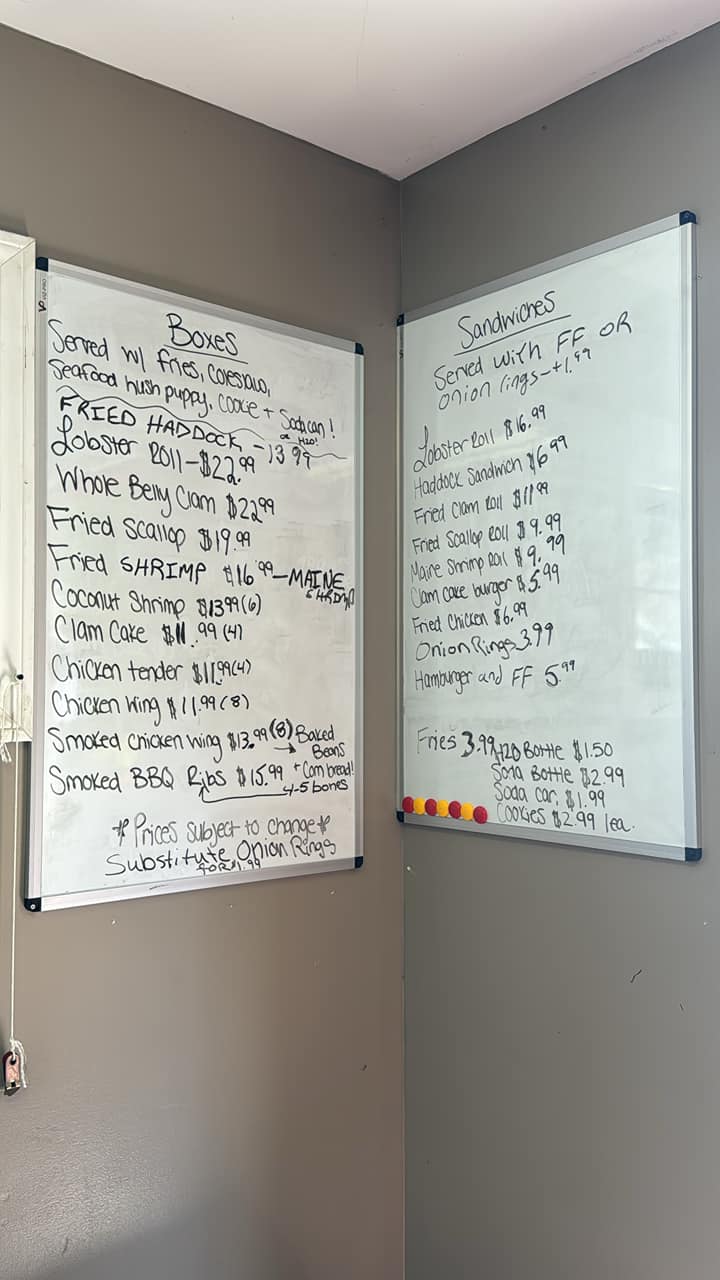 Boxes
Served w/ fries, Coleslaw,
Seafood hush puppy, Cookie + Soda can!
or H20!
FRIED HADDOCK - 13.99
Lobster Roll - $22.99
Whole Belly Clam $22.99
Fried Scallop $19.99
Fried SHRIMP $16.99 - MAINE SHRIMP
Coconut Shrimp $13.99 (6)
Clam Cake $11.99 (4)
Chicken tender $11.99 (4)
Chicken Wing $11.99 (8)
Smoked Chicken Wing $13.99 (8) → Baked Beans
Smoked BBQ Ribs $15.99 + Corn bread!
4-5 bones
* Prices subject to change *
Substitute Onion Rings
FOR $1.99
Sandwiches
Served with FF OR
Onion rings - +1.99
Lobster Roll $16.99
Haddock Sandwich $6.99
Fried Clam Roll $11.99
Fried Scallop Roll $9.99
Maine Shrimp Roll $9.99
Clam cake burger $5.99
Fried Chicken $6.99
Onion Rings 3.99
Hamburger and FF 5.99
Fries 3.99
H20 Bottle $1.50
Soda Bottle $2.99
Soda can $1.99
Cookies $2.99 1ea.